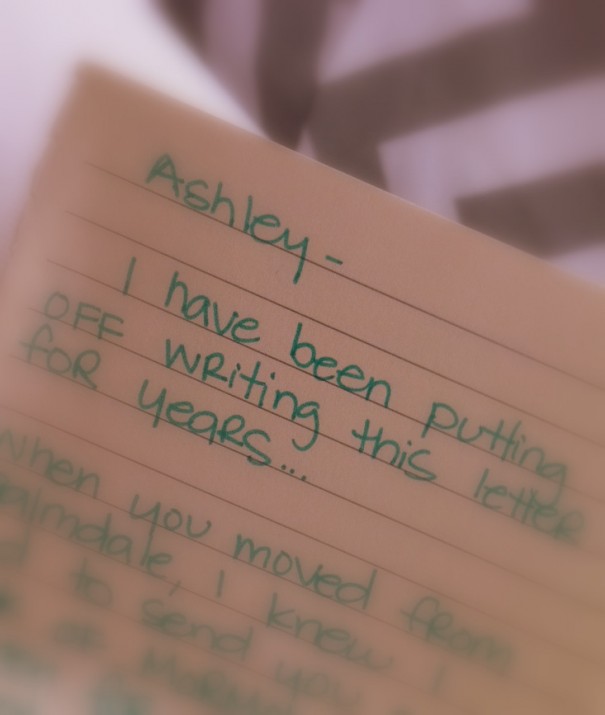 Ashley -
I have been putting
OFF WRiting this letteR
foR yeaRs...
When you moved fRom
almdale, I knew I
d to send you